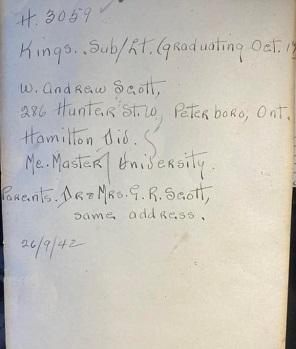 H. 3059
Kings. Sub/Lt. (graduating Oct. 19
W. Andrew Scott,
286 Hunter St. W, Peterboro, Ont.
Hamilton Div.
Mc.Master University.
Parents. Dr & Mrs. G. R. Scott,
same address.
26/9/42